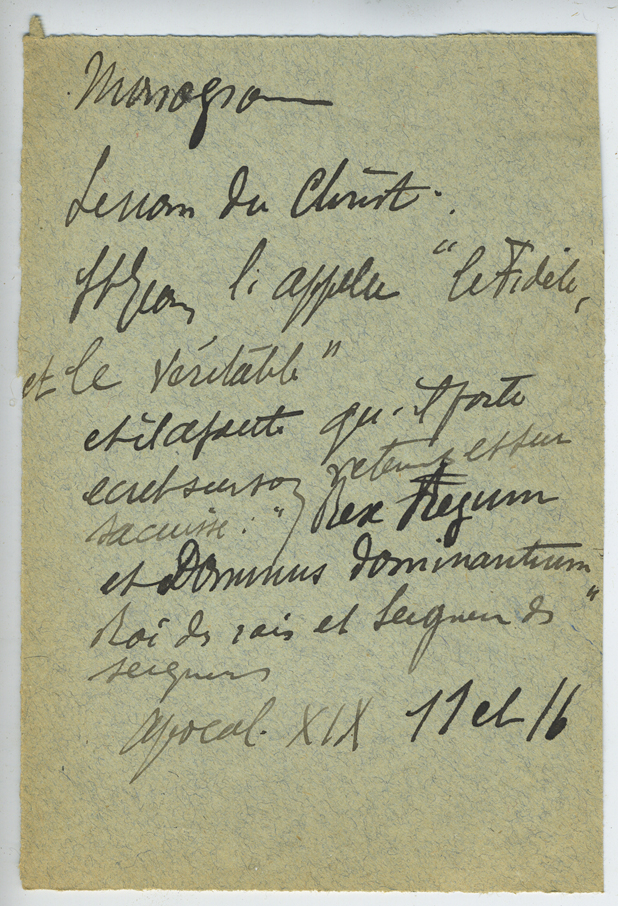 Monogram
Le nom du Christ.
St Jean l'appelle "le Fidèle,
et le véritable"
et il ajoute qu'il porte
ecrit sur son vetement et sur
sa cuisse : " Rex Regum
et Dominus dominantium
Roi des rois et Seigneur des "
seigneurs
Apocal. XIX 11 et 16